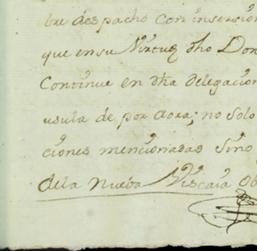 bre despacho con insersion
que en su Virtud dho Don
Continue en dha delegacion
usula de por aora; no solo
ciones mencionadas Sino
de la Nueba Viscaia